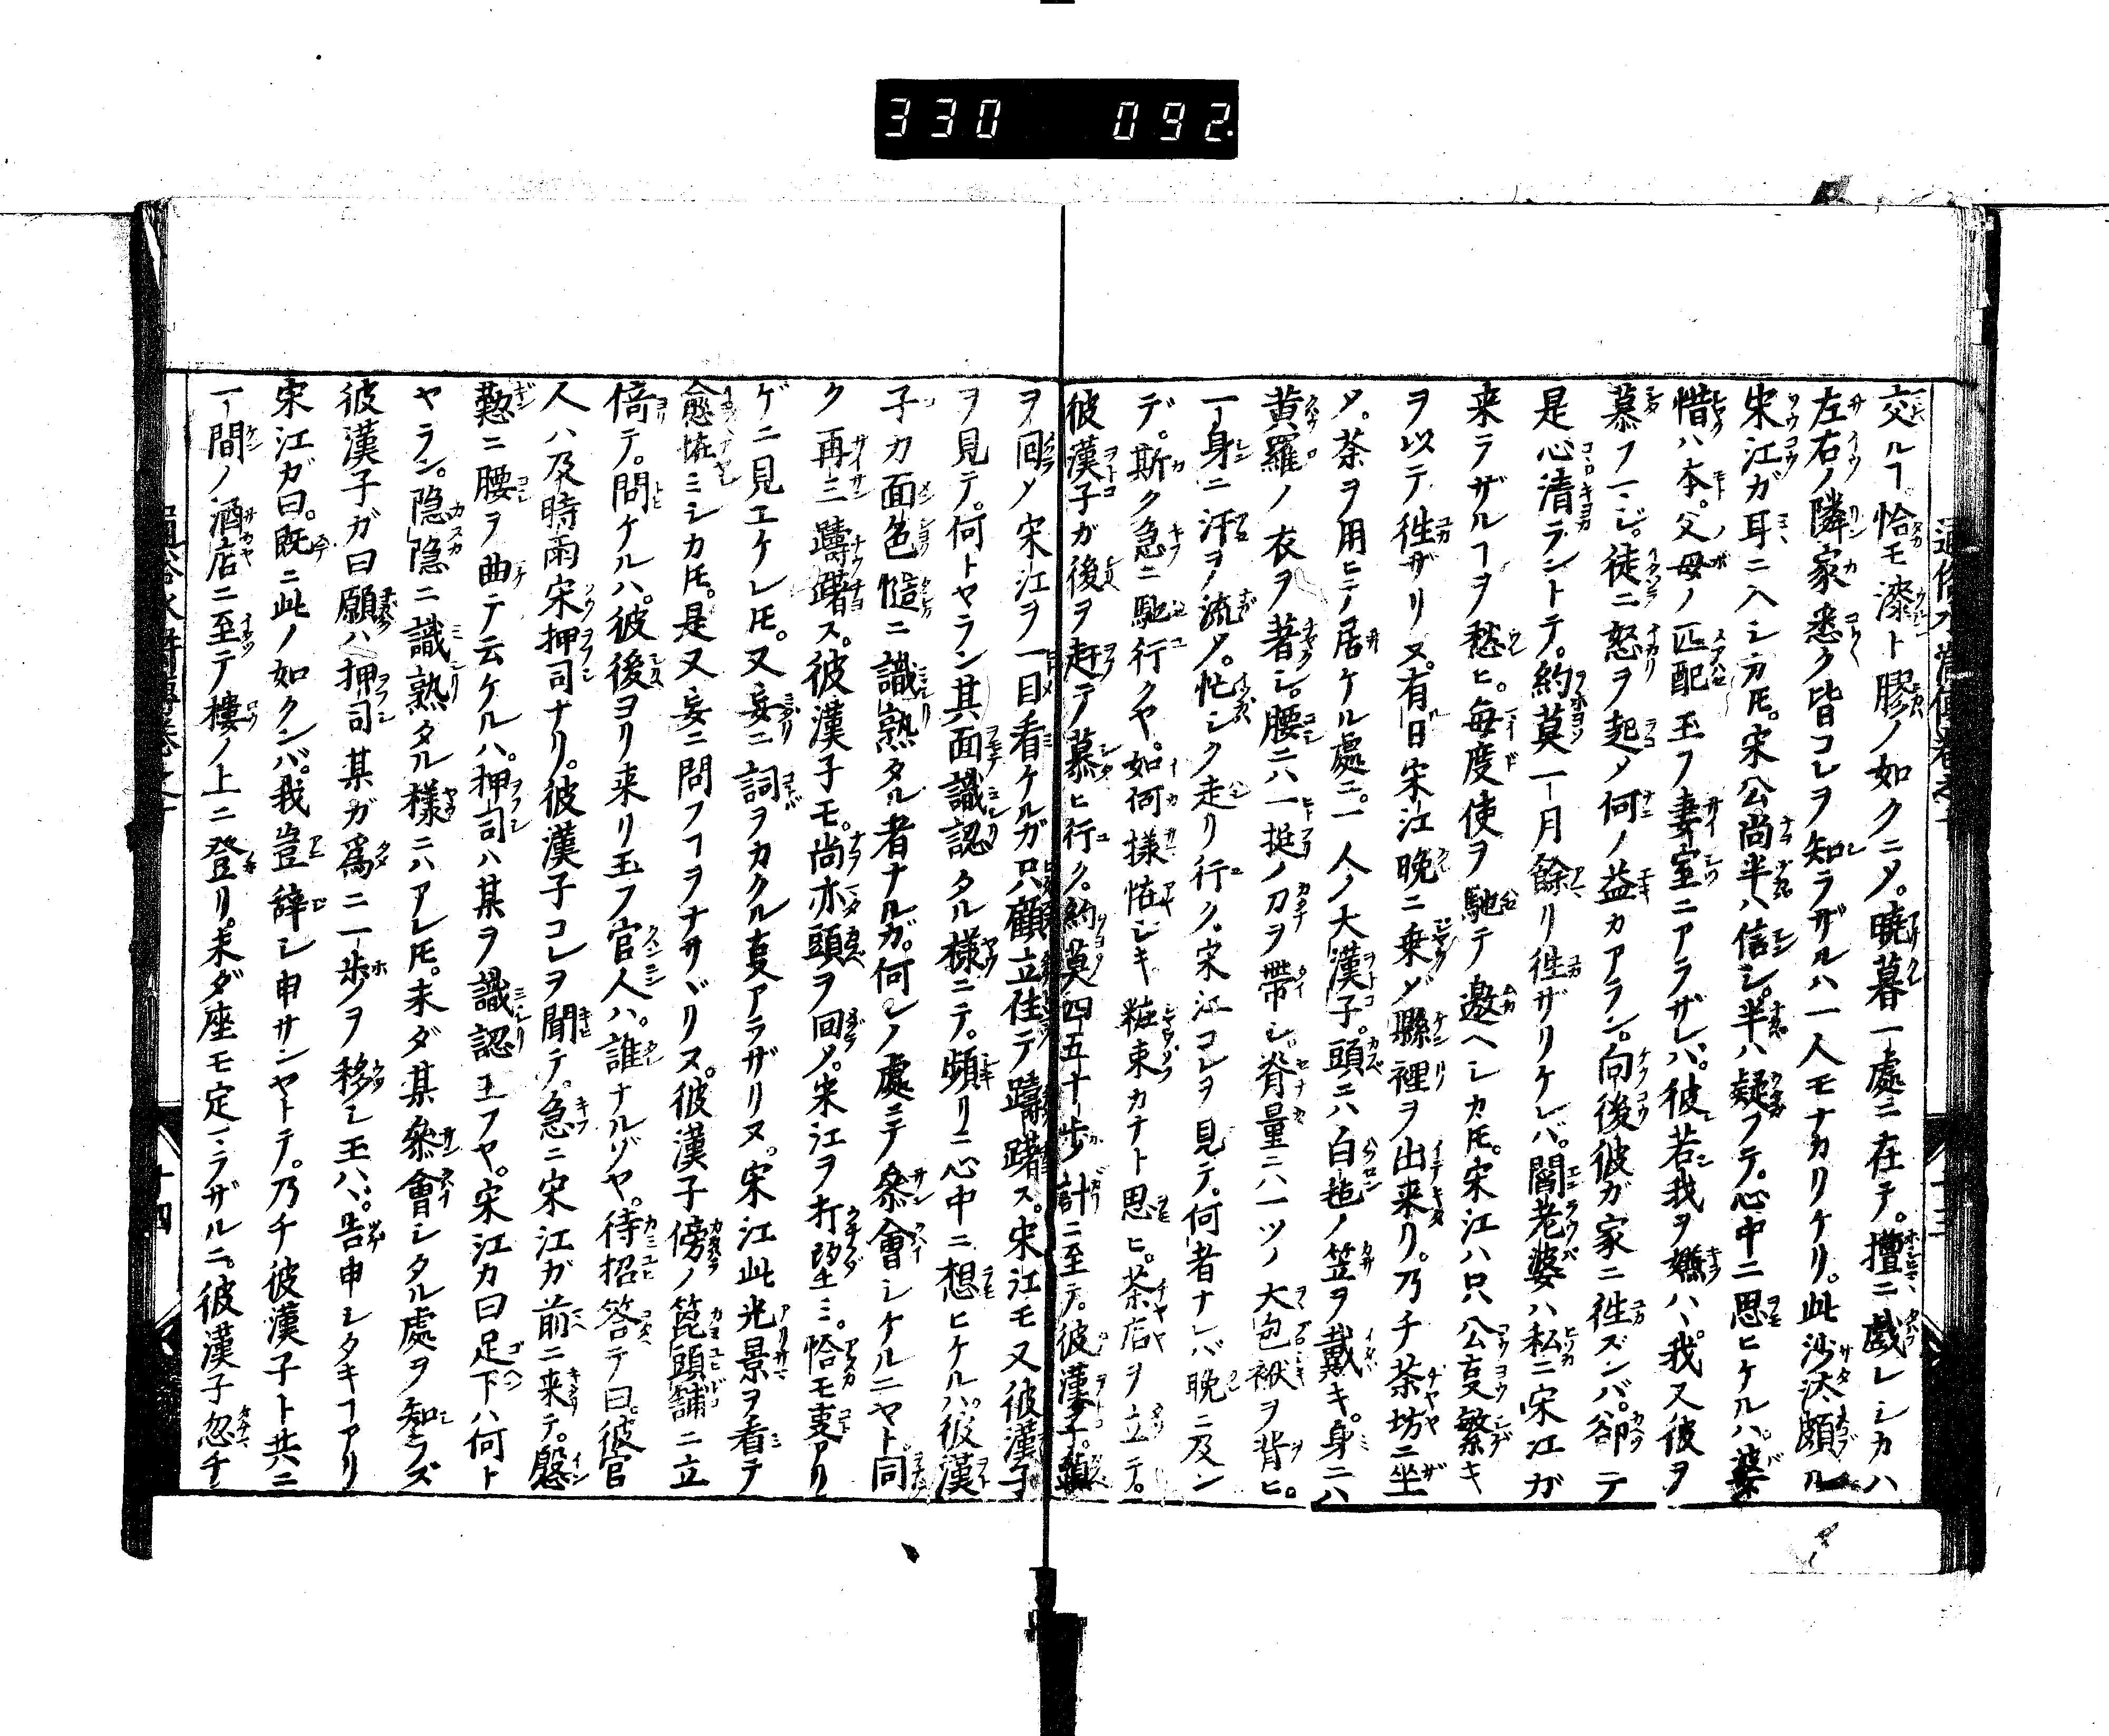 330 092
交ルヿ恰モ漆ト膠ノ如クニメ。暁暮一處ニ在テ。擅ニ戯レシカハ
左右ノ隣家悉ク皆コレヲ知ラザルハ一人モナカリケリ。此沙汰頗ル
宋江ガ耳ニ入シカ𪜈。宋公尚半ハ信シ。半ハ疑フテ。心中ニ思ヒケルハ。婆
惜ハ本。父母ノ匹配玉フ妻室ニアラザレバ。彼若我ヲ嫌ハヾ。我又彼ヲ
慕フベシ。徒ニ怒ヲ起メ何ノ益カアラン。向後彼ガ家ニ徃ズンバ。卻テ
是心清ラントテ。約莫一月餘リ徃ザリケレバ。閻老婆ハ私ニ宋江ガ
来ラザルヿヲ愁ヒ。毎度使ヲ馳テ邀ヘシカ𪜈。宋江ハ只公㕝繁キ
ヲ以テ徃ザリヌ。有日宋江晩ニ乗ジ縣裡ヲ出来リ。乃チ茶坊ニ坐
メ。茶ヲ用ヒテ居ケル處ニ。一人ノ大漢子。頭ニハ白毡ノ笠ヲ戴キ。身ニハ
黄羅ノ衣ヲ著シ。腰ニハ一挺ノ刀ヲ帶シ。脊量ニハ一ツノ大包袱ヲ背ヒ。
一身ニ汗ヲ流メ。忙シク走リ行ク。宋江コレヲ見テ。何者ナレバ晩ニ及ン
デ。斯ク急ニ馳行クヤ。如何様恠シキ粧束カナト思ヒ。茶店ヲ立テ。
彼漢子ガ後ヲ赶テ慕ヒ行ク。約莫四五十歩計ニ至テ。彼漢子。頭
ヲ回メ宋江ヲ一目看ケルガ只顧立住テ躊躇ス。宋江モ又彼漢子
ヲ見テ。何トヤラン其面識認タル様ニテ。頻リニ心中ニ想ヒケルハ。彼漢
子カ面色慥ニ識熟タル者ナルガ。何レノ處ニテ叅會シケルニヤト。同
ク再三躊躇ス。彼漢子モ。尚亦頭ヲ回メ。宋江ヲ打望ミ。恰モ㕝アリ
ゲニ見エケレ𪜈。又妄ニ詞ヲカクル㕝アラザリヌ。宋江此光景ヲ看テ
愈恠ミシカ𪜈。是又妄ニ問フヿヲナサヾリヌ。彼漢子傍ノ篦頭舗ニ立
倚テ。問ケルハ。彼後ヨリ来リ玉フ官人ハ。誰ナルゾヤ。待招答テ曰。彼官
人ハ及時雨宋押司ナリ。彼漢子コレヲ聞テ。急ニ宋江ガ前ニ来テ。慇
懃ニ腰ヲ曲テ云ケルハ。押司ハ某ヲ識認玉フヤ。宋江カ曰足下ハ何ト
ヤラン。隐隐ニ識熟タル様ニハアレ𪜈。未ダ某叅會シタル處ヲ知ラズ
彼漢子ガ曰願ハ押司某ガ為ニ一歩ヲ移シ玉ハヾ。告申シタキヿアリ
宋江ガ曰。既ニ此ノ如クンバ。我豈辞シ申サンヤトテ。乃チ彼漢子ト共ニ
一間ノ酒店ニ至テ樓ノ上ニ登リ。未ダ座モ定ラザルニ。彼漢子忽チ
十四